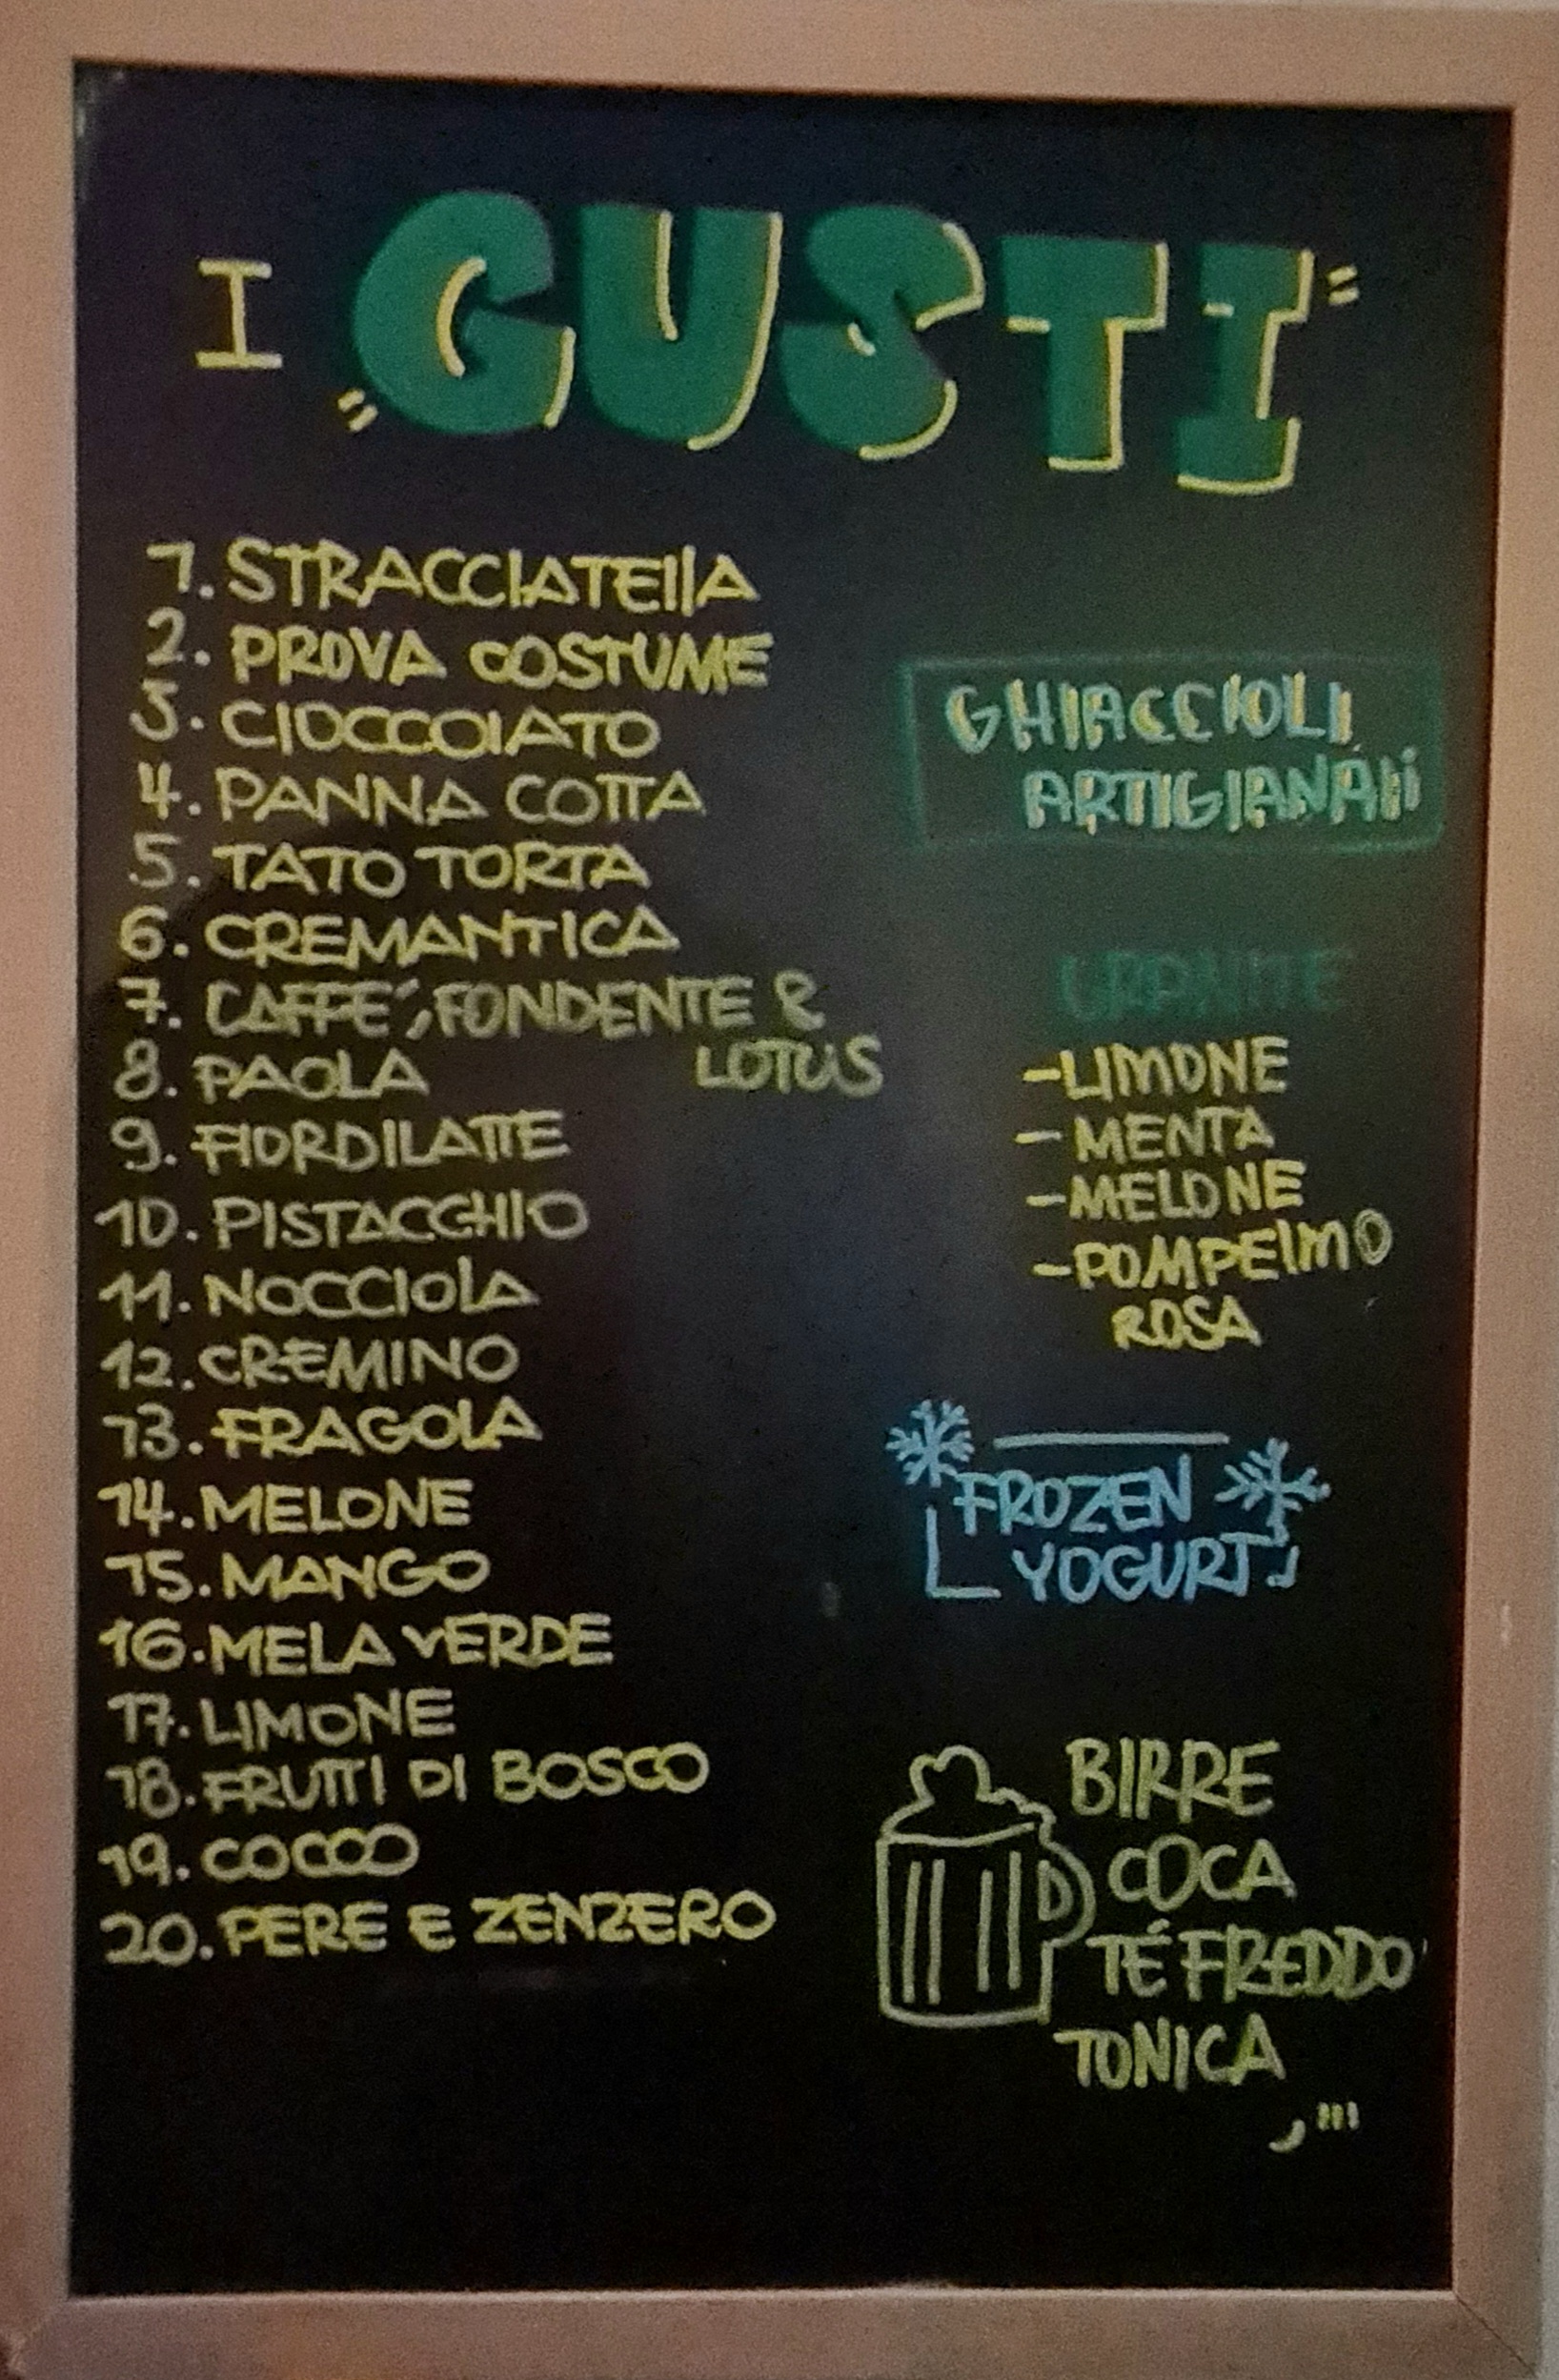 I GUSTI
1. STRACCIATELLA
2. PROVA COSTUME
3. CIOCCOLATO
4. PANNA COTTA
5. TATO TORTA
6. CREMANTICA
7. CAFFE', FONDENTE &
LOTUS
8. PAOLA
9. FIORDILATTE
10. PISTACCHIO
11. NOCCIOLA
12. CREMINO
13. FRAGOLA
14. MELONE
15. MANGO
16. MELA VERDE
17. LIMONE
18. FRUTTI DI BOSCO
19. COCCO
20. PERE E ZENZERO
GHIACCIOLI
ARTIGIANALI
GRANITE
- LIMONE
- MENTA
- MELONE
- POMPELMO
ROSA
FROZEN
YOGURT
BIRRE
COCA
TÉ FREDDO
TONICA